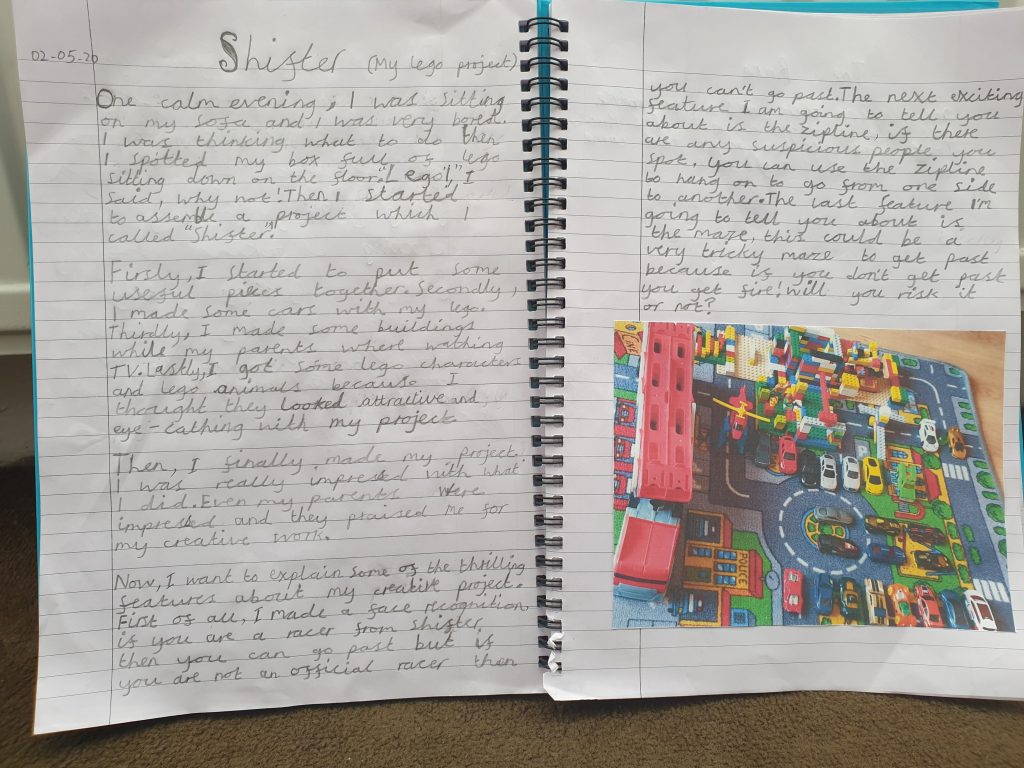 02-05-20
Shifter (My lego project)
One calm evening, I was sitting
on my sofa and I was very bored.
I was thinking what to do then
I spotted my box full of lego
sitting down on the floor."Lego!" I
said, why not! Then I started
to assemble a project which I
called "Shifter".
Firstly, I started to put some
useful pieces together. Secondly,
I made some cars with my lego.
Thirdly, I made some buildings
while my parents where wathing
TV. Lastly, I got some lego characters
and lego animals because I
thought they looked attractive and
eye-cathing with my project.
Then, I finally made my project.
I was really impressed with what
I did. Even my parents were
impressed and they praised me for
my creative work.
Now, I want to explain some of the thrilling
features about my creative project.
First of all, I made a face recognition
if you are a racer from shifter,
then you can go past but if
you are not an official racer then
you can't go past. The next exciting
feature I am going to tell you
about is the zipline, if there
are any suspicious people you
spot, you can use the zipline
to hang on to go from one side
to another. The last feature I'm
going to tell you about is
the maze, this could be a
very tricky maze to get past
because if you don't get past
you get fire! Will you risk it
or not?
POLICE